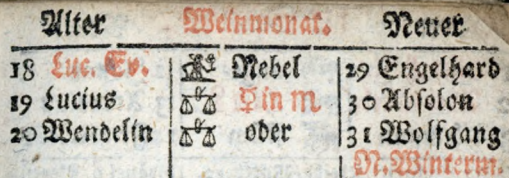 Alter Weinmonat. Neuer
18 Luc. Ev. Nebel 29 Engelhard
19 Lucius ☿ in ♏ 30 Absolon
20 Wendelin ♎ oder 31 Wolfgang
N. Winterm.